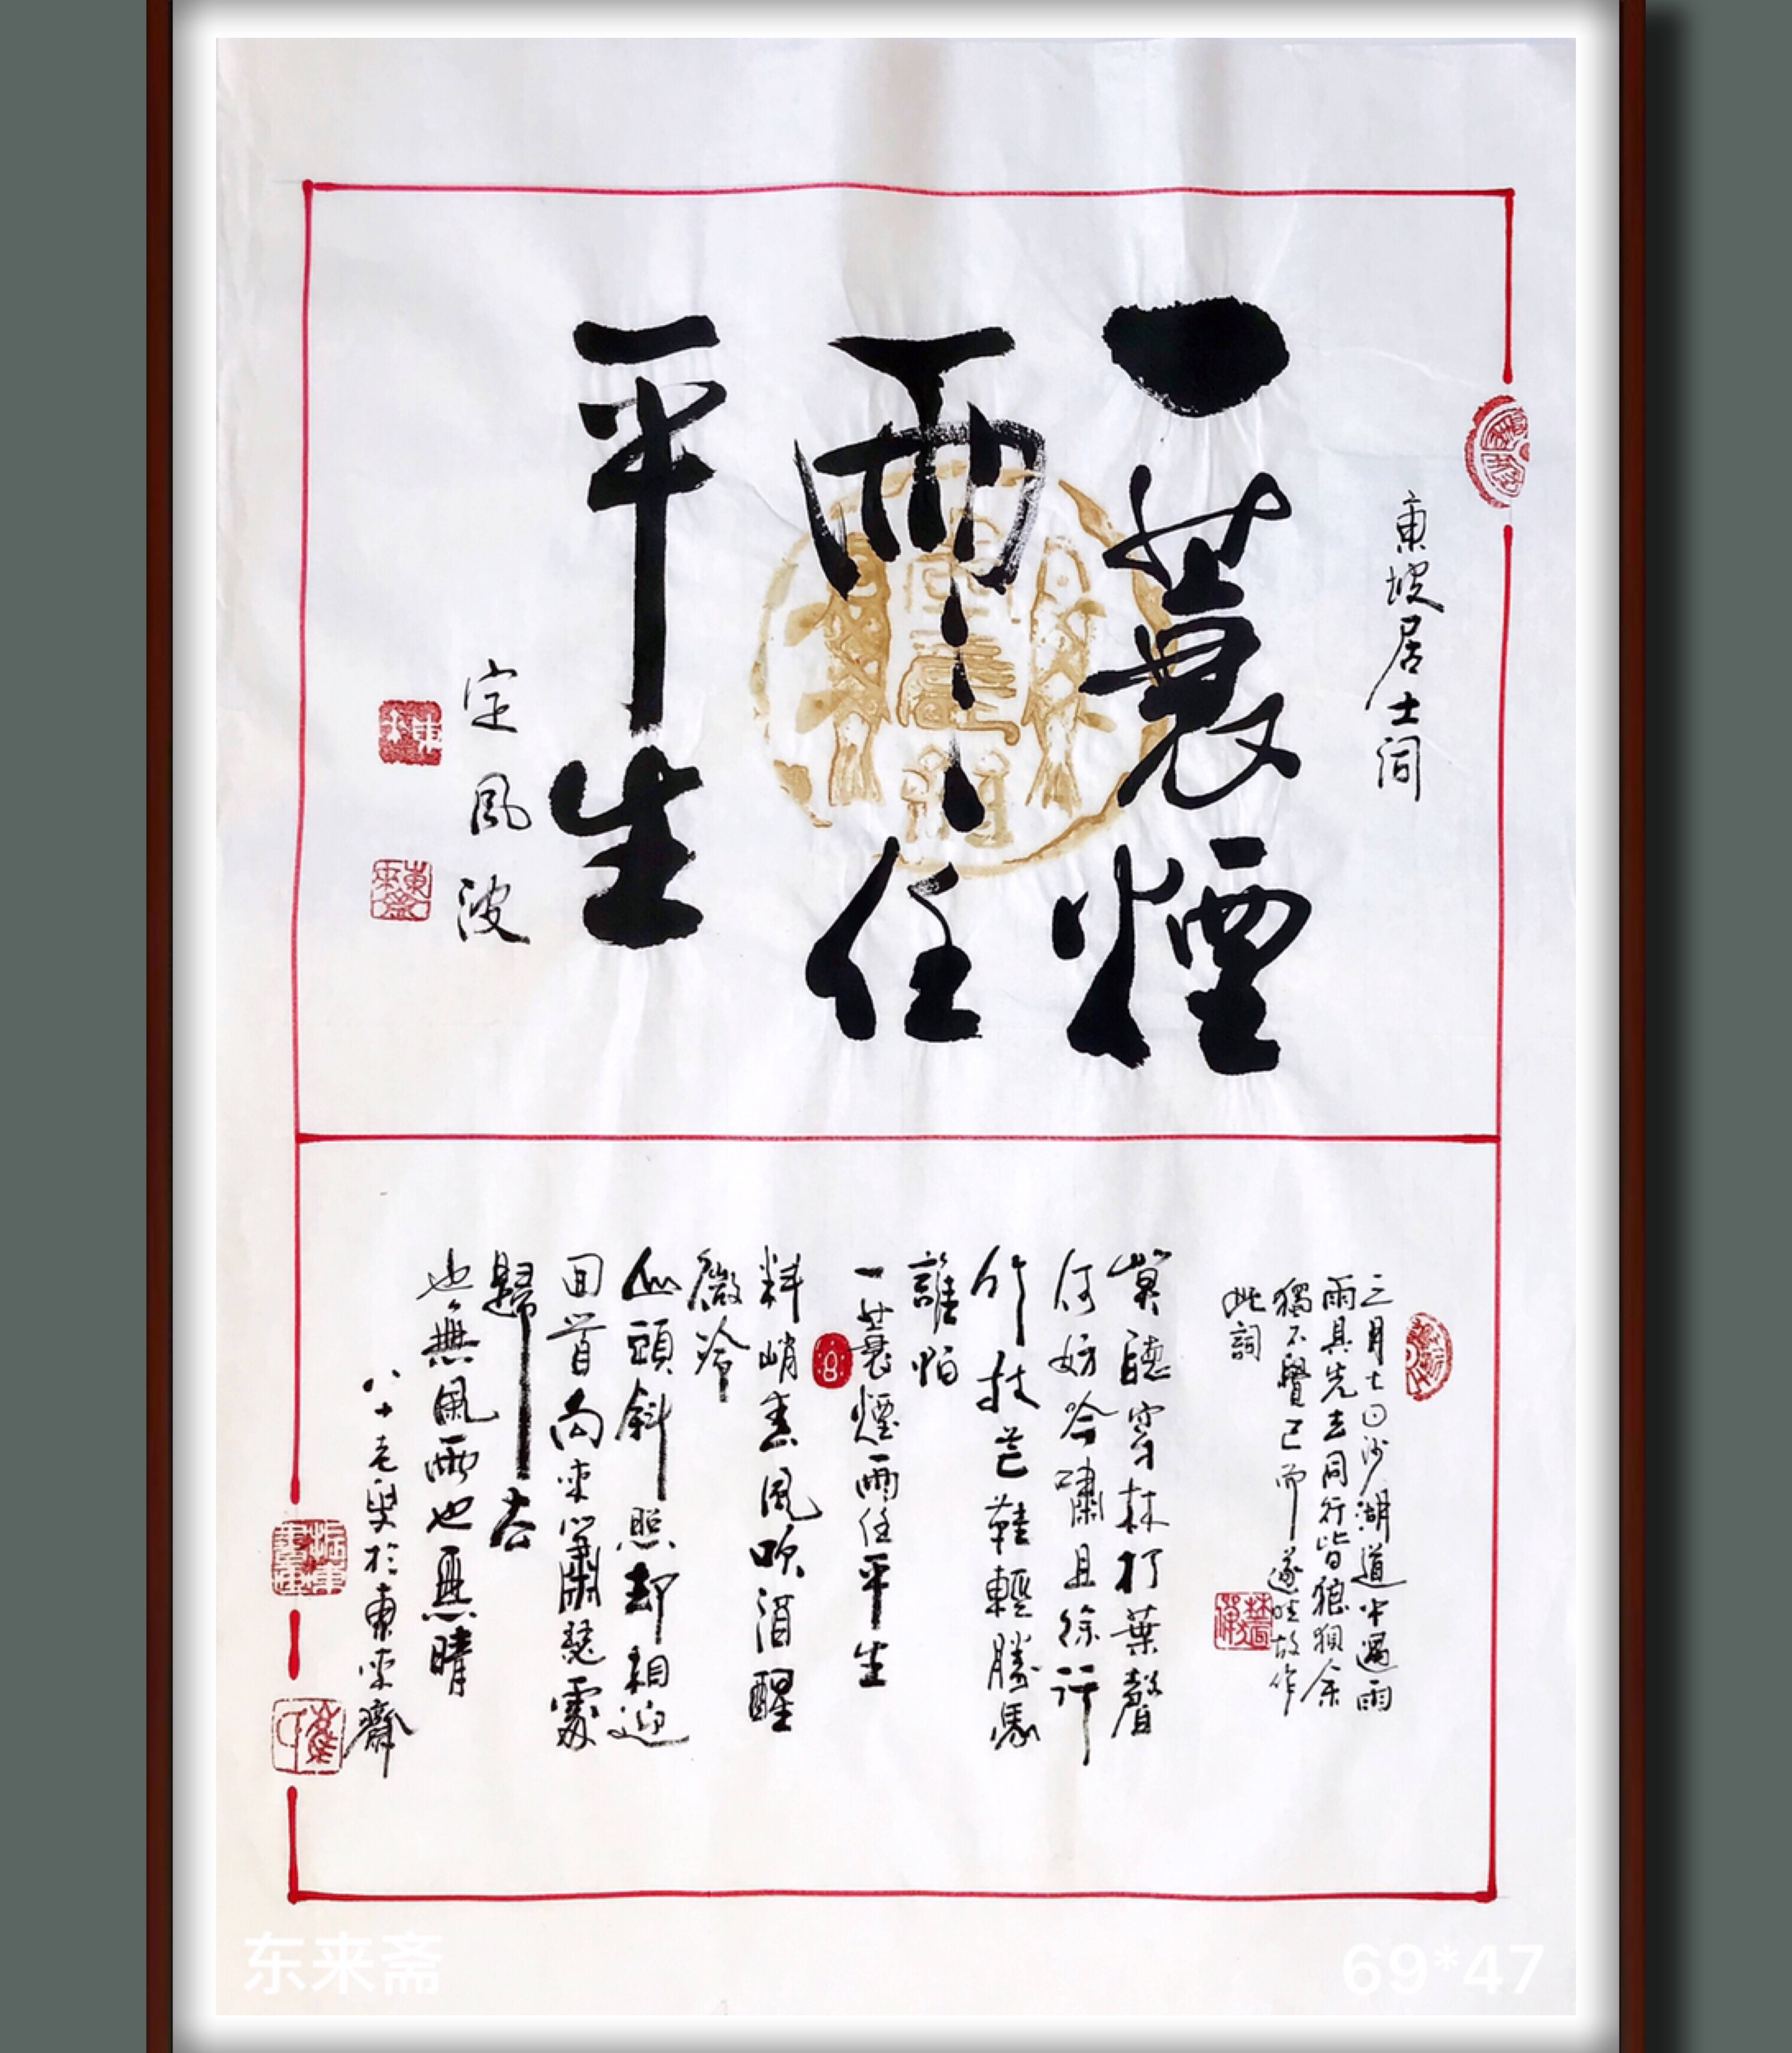 東坡居士詞
一蓑煙
雨任
平生
定風波
三月七日沙湖道中遇雨
雨具先去同行皆狼狽余
獨不覺已而遂晴故作
此詞
莫聽穿林打葉聲
何妨吟嘯且徐行
竹杖芒鞋輕勝馬
誰怕
一蓑煙雨任平生
料峭春風吹酒醒
微冷
山頭斜照却相迎
回首向來蕭瑟處
歸去
也無風雨也無晴
八十老叟於東來齋
东来斋
69*47